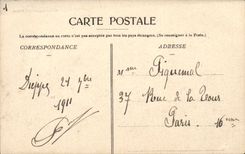 CARTE POSTALE
La correspondance au recto n'est pas acceptée par tous les pays étrangers. (Se renseigner à la Poste.)
CORRESPONDANCE
ADRESSE
Dieppe 21 7bre
1911
Piquemal
37 Rue de la Tour
Paris 16